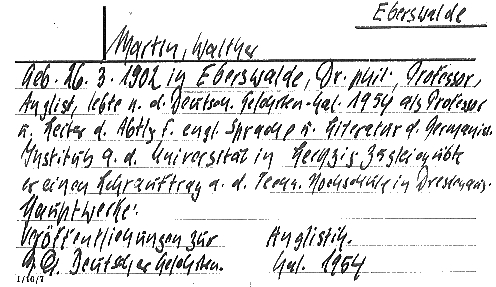 Eberswalde
Martin, Walther
Geb. 26. 3. 1902 in Eberswalde, Dr. phil., Professor,
Anglist, lebte n. d. Deutsch. Gelehrten-Kal. 1954 als Professor
u. Leiter d. Abtlg f. engl. Sprache u. Literatur d. Germanist.
Instituts a. d. Universität in Leipzig zugleich übte
er einen Lehrauftrag a. d. Techn. Hochschule in Dresden aus.
Hauptwerke:
Veröffentlichungen zur Anglistik.
Deutscher Gelehrten. Kal. 1954